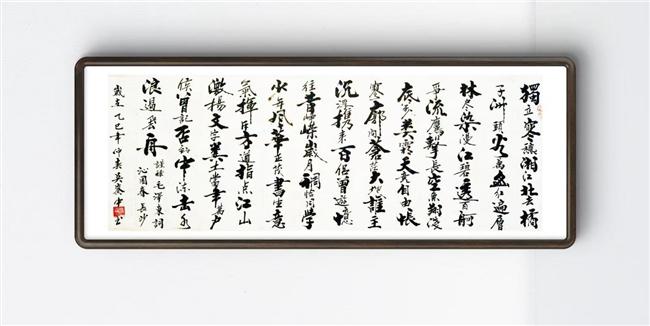 獨立寒秋湘江北去橘
子洲頭看萬山紅遍層
林盡染漫江碧透百舸
爭流鷹擊長空魚翔淺
底萬類霜天競自由悵
寥廓問蒼茫大地誰主
沉浮携来百侣曾遊憶
往昔崢嶸歲月稠恰同學
少年風華正茂書生意
氣揮斥方遒指点江山
激揚文字糞土當年萬户
侯曾記否到中流击水
浪遏飛舟
毛澤東詞
沁園春長沙
歲在乙巳年仲